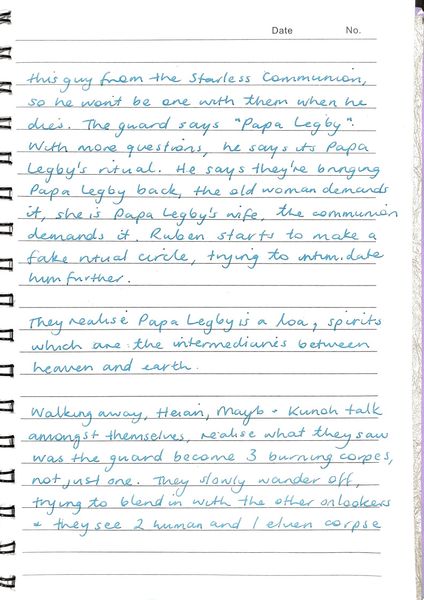 Date No.
this guy from the Starless Communion,
so he won't be one with them when he
dies. The guard says "Papa Legby".
With more questions, he says its Papa
Legby's ritual. He says they're bringing
Papa Legby back, the old woman demands
it, she is Papa Legby's wife, the communion
demands it. Ruben starts to make a
fake ritual circle, trying to intimidate
him further.
They realise Papa Legby is a loa, spirits
which are the intermediaries between
heaven and earth.
Walking away, Heian, Mayb + Kunoh talk
amongst themselves, realise what they saw
was the guard become 3 burning corpes,
not just one. They slowly wander off,
trying to blend in with the other onlookers
+ they see 2 human and 1 elven corpse